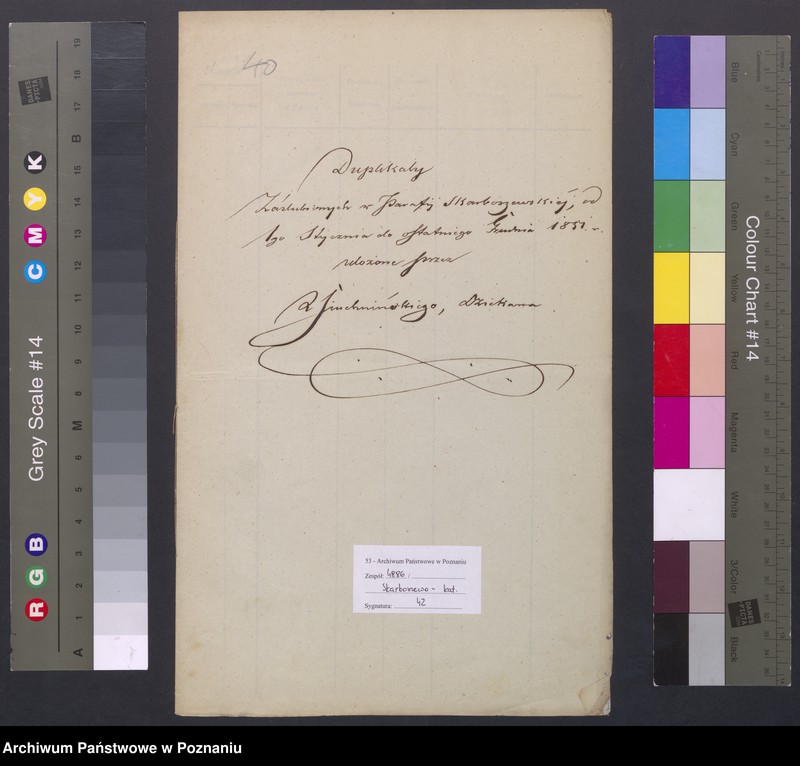 40
Duplikaty
Zaślubionych w Parafij Skarboszewskiéj, od
1go Stycznia do ostatniego Grudnia 1851 r.
ułożone przez
Dziekana.
53 – Archiwum Państwowe w Poznaniu
Zespół: 4886 /
Skarboszewo - kat.
Sygnatura: 42
Grey Scale #14
R G B C M Y K
A 1 2 3 4 5 6 M 8 9 10 11 12 13 14 15 B 17 18 19
DANES PICTA
Colour Chart #14
Blue
Cyan
Green
Yellow
Red
Magenta
White
3/Color
Black
Centimetres
DANES PICTA
Archiwum Państwowe w Poznaniu